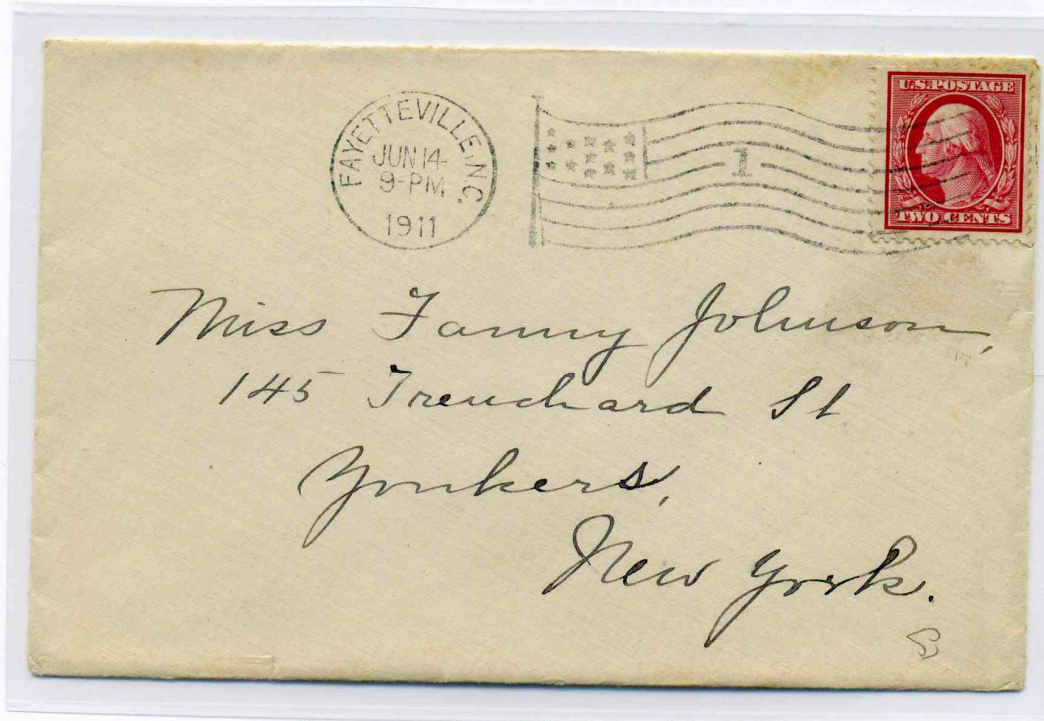 FAYETTEVILLE, N.C.
JUN 14
9-PM
1911
1
U.S. POSTAGE
TWO CENTS
Miss Fanny Johnson,
145 Trenchard St
Yonkers,
New York.